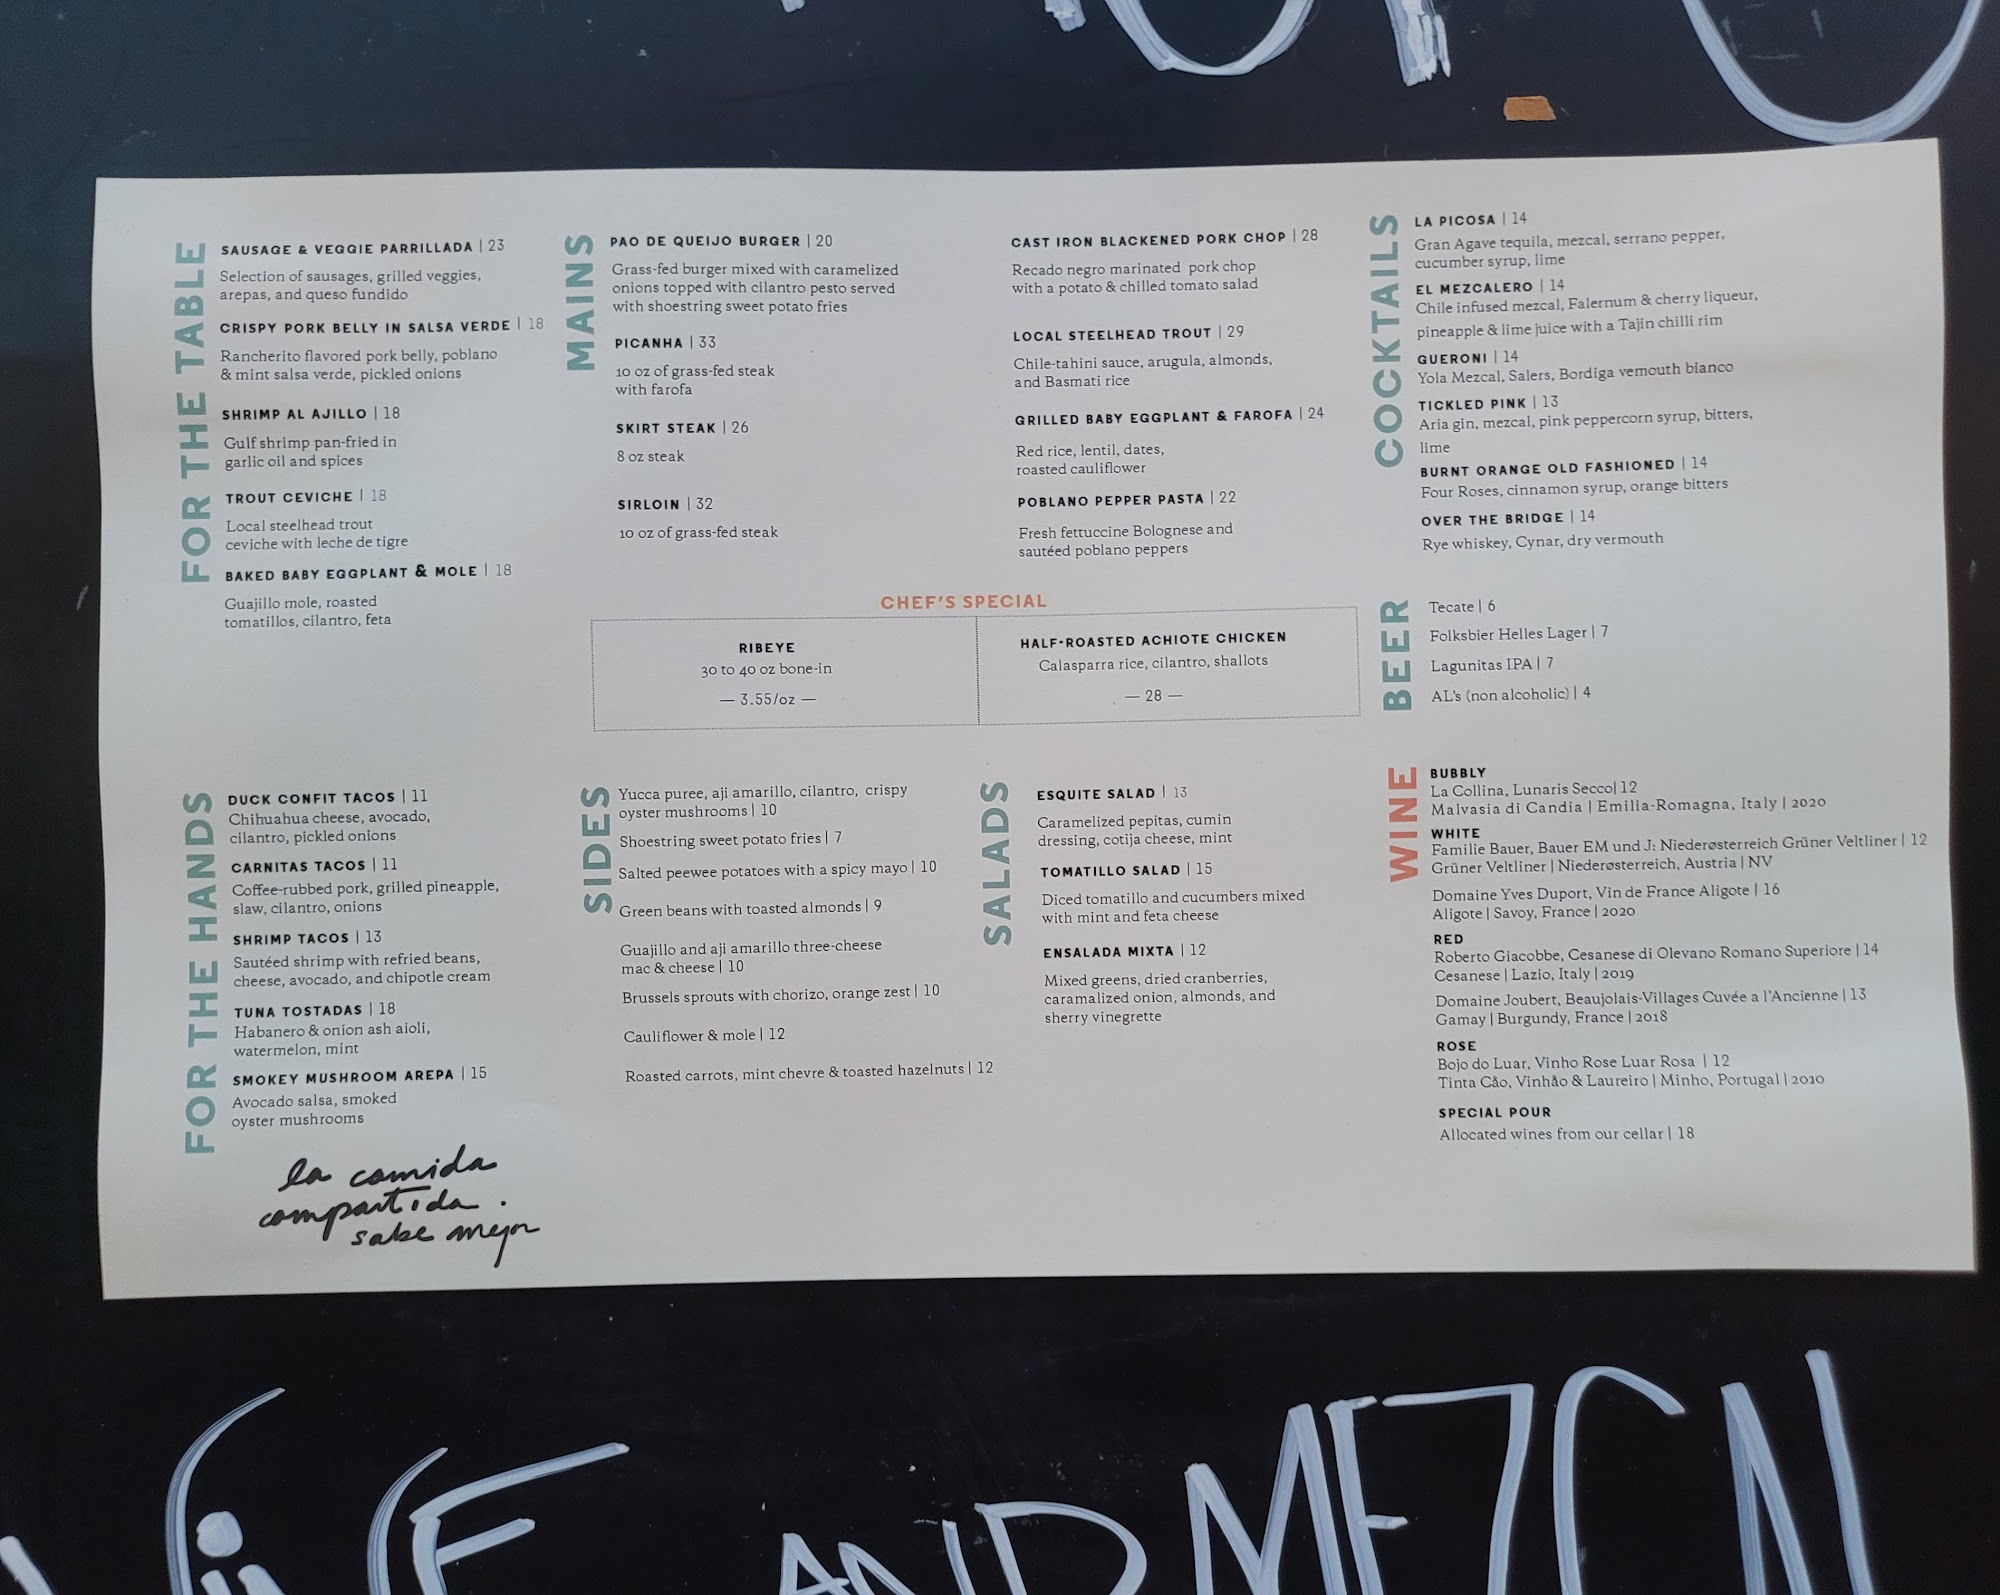 FOR THE TABLE
SAUSAGE & VEGGIE PARRILLADA | 23
Selection of sausages, grilled veggies,
arepas, and queso fundido
CRISPY PORK BELLY IN SALSA VERDE | 18
Rancherito flavored pork belly, poblano
& mint salsa verde, pickled onions
SHRIMP AL AJILLO | 18
Gulf shrimp pan-fried in
garlic oil and spices
TROUT CEVICHE | 18
Local steelhead trout
ceviche with leche de tigre
BAKED BABY EGGPLANT & MOLE | 18
Guajillo mole, roasted
tomatillos, cilantro, feta
MAINS
PAO DE QUEIJO BURGER | 20
Grass-fed burger mixed with caramelized
onions topped with cilantro pesto served
with shoestring sweet potato fries
PICANHA | 33
10 oz of grass-fed steak
with farofa
SKIRT STEAK | 26
8 oz steak
SIRLOIN | 32
10 oz of grass-fed steak
CAST IRON BLACKENED PORK CHOP | 28
Recado negro marinated pork chop
with a potato & chilled tomato salad
LOCAL STEELHEAD TROUT | 29
Chile-tahini sauce, arugula, almonds,
and Basmati rice
GRILLED BABY EGGPLANT & FAROFA | 24
Red rice, lentil, dates,
roasted cauliflower
POBLANO PEPPER PASTA | 22
Fresh fettuccine Bolognese and
sautéed poblano peppers
CHEF'S SPECIAL
RIBEYE
30 to 40 oz bone-in
— 3.55/oz —
HALF-ROASTED ACHIOTE CHICKEN
Calasparra rice, cilantro, shallots
— 28 —
COCKTAILS
LA PICOSA | 14
Gran Agave tequila, mezcal, serrano pepper,
cucumber syrup, lime
EL MEZCALERO | 14
Chile infused mezcal, Falernum & cherry liqueur,
pineapple & lime juice with a Tajin chilli rim
GUERONI | 14
Yola Mezcal, Salers, Bordiga vemouth bianco
TICKLED PINK | 13
Aria gin, mezcal, pink peppercorn syrup, bitters,
lime
BURNT ORANGE OLD FASHIONED | 14
Four Roses, cinnamon syrup, orange bitters
OVER THE BRIDGE | 14
Rye whiskey, Cynar, dry vermouth
BEER
Tecate | 6
Folksbier Helles Lager | 7
Lagunitas IPA | 7
AL's (non alcoholic) | 4
FOR THE HANDS
DUCK CONFIT TACOS | 11
Chihuahua cheese, avocado,
cilantro, pickled onions
CARNITAS TACOS | 11
Coffee-rubbed pork, grilled pineapple,
slaw, cilantro, onions
SHRIMP TACOS | 13
Sautéed shrimp with refried beans,
cheese, avocado, and chipotle cream
TUNA TOSTADAS | 18
Habanero & onion ash aioli,
watermelon, mint
SMOKEY MUSHROOM AREPA | 15
Avocado salsa, smoked
oyster mushrooms
la comida
compartida.
sabe mejor
SIDES
Yucca puree, aji amarillo, cilantro, crispy
oyster mushrooms | 10
Shoestring sweet potato fries | 7
Salted peewee potatoes with a spicy mayo | 10
Green beans with toasted almonds | 9
Guajillo and aji amarillo three-cheese
mac & cheese | 10
Brussels sprouts with chorizo, orange zest | 10
Cauliflower & mole | 12
Roasted carrots, mint chevre & toasted hazelnuts | 12
SALADS
ESQUITE SALAD | 13
Caramelized pepitas, cumin
dressing, cotija cheese, mint
TOMATILLO SALAD | 15
Diced tomatillo and cucumbers mixed
with mint and feta cheese
ENSALADA MIXTA | 12
Mixed greens, dried cranberries,
caramalized onion, almonds, and
sherry vinegrette
WINE
BUBBLY
La Collina, Lunaris Secco| 12
Malvasia di Candia | Emilia-Romagna, Italy | 2020
WHITE
Familie Bauer, Bauer EM und J: Niederøsterreich Grüner Veltliner | 12
Grüner Veltliner | Niederøsterreich, Austria | NV
Domaine Yves Duport, Vin de France Aligote | 16
Aligote | Savoy, France | 2020
RED
Roberto Giacobbe, Cesanese di Olevano Romano Superiore | 14
Cesanese | Lazio, Italy | 2019
Domaine Joubert, Beaujolais-Villages Cuvée a l'Ancienne | 13
Gamay | Burgundy, France | 2018
ROSE
Bojo do Luar, Vinho Rose Luar Rosa | 12
Tinta Cåo, Vinhåo & Laureiro | Minho, Portugal | 2010
SPECIAL POUR
Allocated wines from our cellar | 18
AND